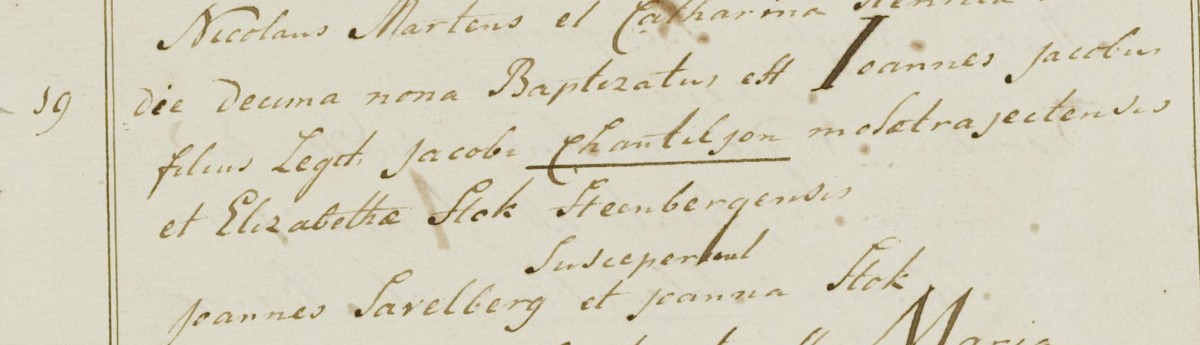 Nicolaus Martens et Catharina
19 die decima nona Baptizatus est Joannes Jacobus
filius Legit: Jacobi Chantiljon mosetrajectensis
et Elizabethæ Stok Steenbergensis
Susceperunt
Joannes Savelberg et Joanna Stok
Maria